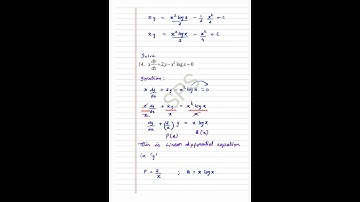 xy = x² log x / 2 - 1/2 x²/2 + c
xy = x² log x / 2 - x²/4 + c
Solve
14. x dy/dx + 2y - x² log x = 0
Solution:
x dy/dx + 2y - x² log x = 0
x/x dy/dx + 2y/x = x² log x / x
dy/dx + (2/x) y = x log x
P(x) Q(x)
This is Linear differential equation
in 'y'
P = 2/x ; Q = x log x
SPS